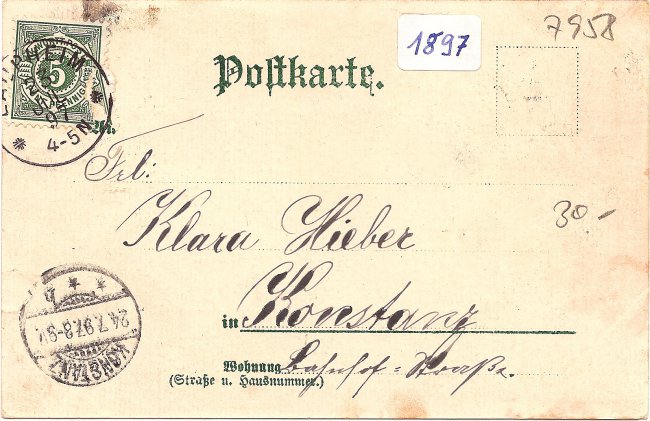 7958
1897
Postkarte.
5
PFENNIG
HEIM
4-5N
An
Frl:
Klara Hieber
30.-
in Konstanz
Wohnung Bahnhof=Straße.
(Straße u. Hausnummer.)
24.7.97.8-9V.
KONSTANZ